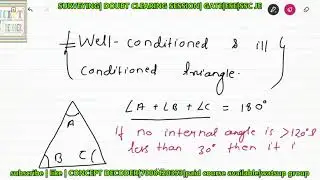 SURVEYING| DOUBT CLEARING SESSION| GATE|ESE|SSC JE
Well-conditioned & ill
conditioned triangle.
A
B C
∠A + ∠B + ∠C = 180°
If no internal angle is >120°
less than 30° then it i
subscribe | like | CONCEPT DECODER(7006430353)paid course available|watsup group